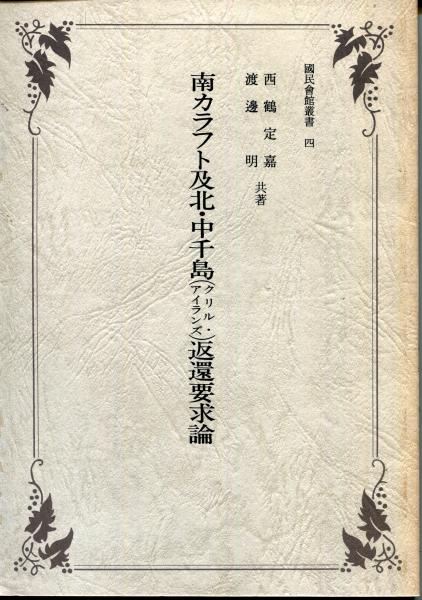 國民會館叢書 四
西鶴定嘉
渡邊明
共著
南カラフト及北・中千島(クリル・アイランズ)返還要求論